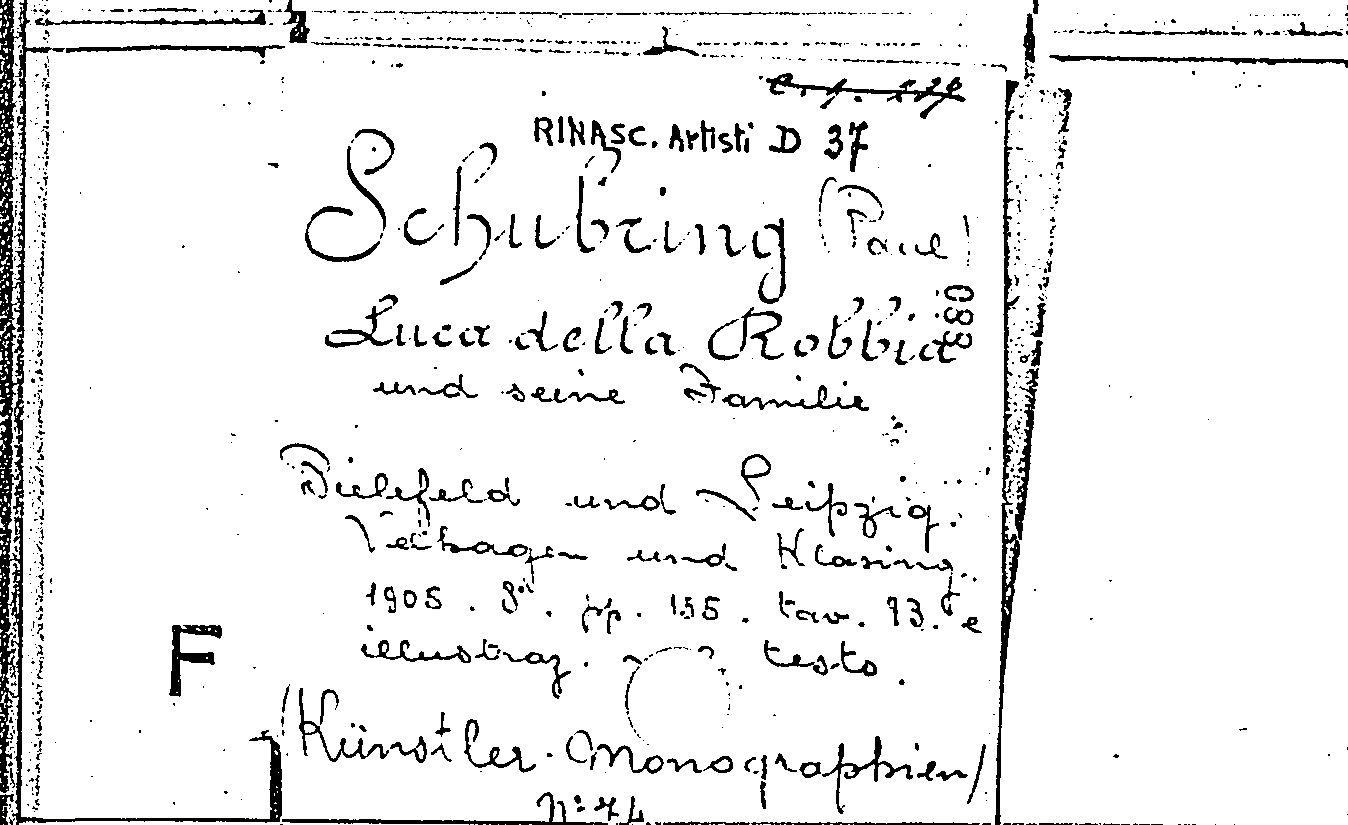 RINASC. Artisti D 37
Schubring (Paul)
083
Luca della Robbia
und seine Familie
Bielefeld und Leipzig.
Velhagen und Klasing.
1905. 8°. pp. 155. tav. 93. e
illustraz. testo.
F
(Künstler-Monographien)
N° 74